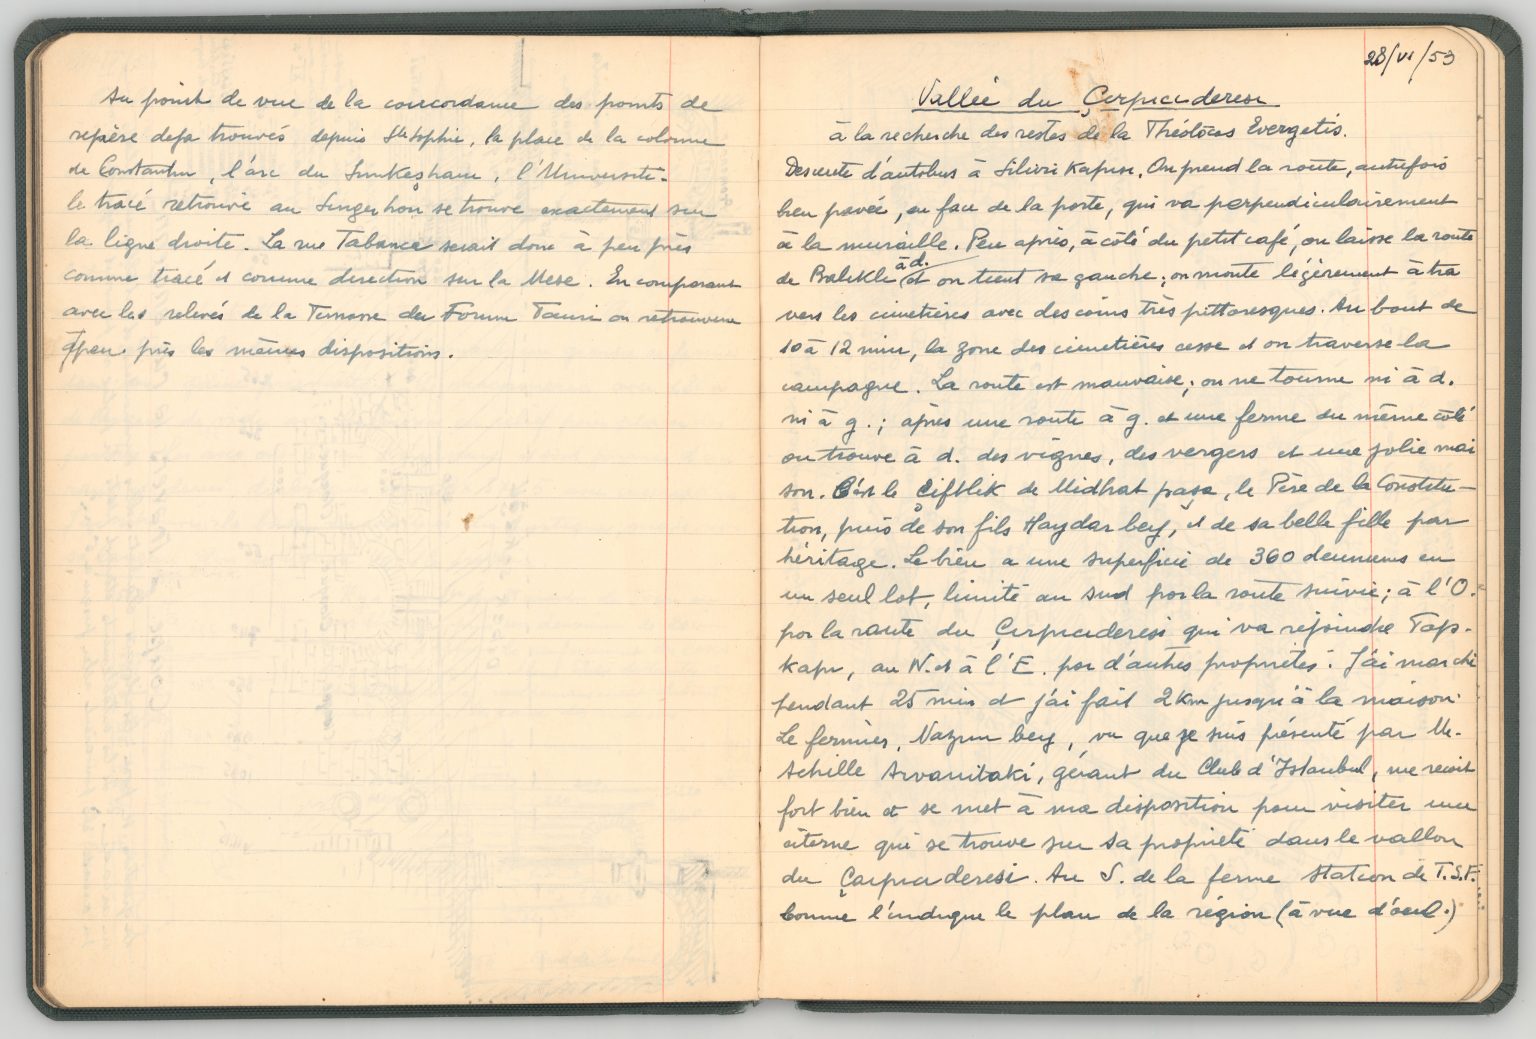 Au point de vue de la concordance des points de
repère deja trouvés depuis Ste Sophie, la place de la colonne
de Constantin, l'arc du Simkeşhane, l'Université.
le tracé retrouvé au Singerhon se trouve exactement sur
la ligne droite. La rue Tabanca serait donc à peu près
comme tracé et comme direction sur la Mese. En comparant
avec les relevés de la Terrasse du Forum Tauri on retrouverne
à peu près les mêmes dispositions.
28/VI/53
Vallée du Çırpıcıderesi
à la recherche des restes de la Théotocos Evergetis.
Descente d'autobus à Silivri Kapusı. On prend la route, autrefois
bien pavée, en face de la porte, qui va perpendiculairement
à la muraille. Peu après, à côté du petit café, on laisse la route
de Balıklı à d. et on tient sa gauche; on monte légèrement à tra
vers les cimetières avec des coins très pittoresques. Au bout de
10 à 12 min, la zone des cimetières cesse et on traverse la
campagne. La route est mauvaise; on ne tourne ni à d.
ni à g.; après une route à g. et une ferme du même côté
on trouve à d. des vignes, des vergers et une jolie mai
son. C'est le Çiftlik de Midhat paşa, le Père de la Constitu-
tion, puis de son fils Haydar bey, et de sa belle fille par
héritage. Le bien a une superficie de 360 deunums en
un seul lot, limité au sud par la route suivie; à l'O.
par la route du Çırpıcıderesi qui va rejoindre Top-
kapı, au N. et à l'E. par d'autres propriétés. J'ai marché
pendant 25 min et j'ai fait 2 km jusqu'à la maison.
Le fermier, Nazım bey, vu que je suis présenté par M.
Achille Arvanitaki, gérant du Club d'Istanbul, me reçoit
fort bien et se met à ma disposition pour visiter une
citerne qui se trouve sur sa propriété dans le vallon
du Çarpıcıderesi. Au S. de la ferme station de T.S.F.
comme l'indique le plan de la région (à vue d'oeil.)